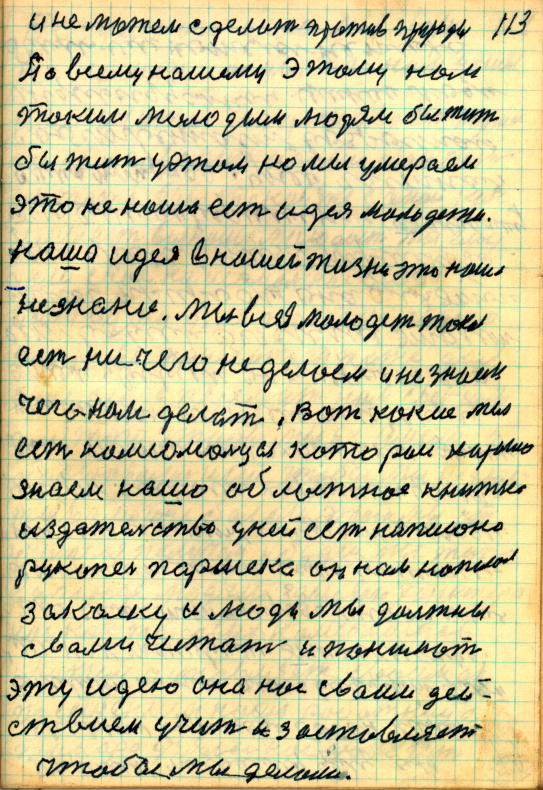 и не можем сделат против природы 113
По всему нашему этому нам
таким молодым людям бытит
бытит у этом но мы умераем
это не наша ест идея молодежи.
наша идея в нашей жизни это наше
незнание. Мы вся молодет така
ест ни чего не делаем и незнаем
чего нам делат, Вот какие мы
ест комсомолцы котором харашо
знаем нашо об книтка
издателство уней ест написано
рукопес паришека он нам написал
закалку и люди мы должны
свами читат и понимат
эту идею она нас сваим дей-
ствием учит и заставляет
чтобы мы делали.